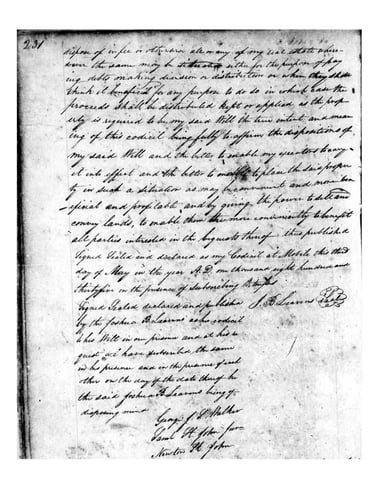 231
dispose of in fee or otherwise all or any of my real estate where
ever the same may be situated either for the purpose of pay
ing debts making division or distribution or when they shall
think it beneficial for any purpose to do so in which case the
proceeds shall be distributed kept or applied as the prop
erty is required to be by my said Will the true intent and mean
ing of this codicil being fully to affirm the dispositions of
my said Will and the better to enable my executors to carry
it into effect and the better to enable to place the said proper
ty in such a situation as may be convenient and more ben
eficial and profitable and by giving the power to sell and
convey lands, to enable them the more conveniently to benefit
all parties interested in the bequests thereof. thus published
signed sealed and declared as my Codicil at Mobile this third
day of May in the year A.D. one thousand eight hundred and
thirty five in the presence of subscribing
Signed Sealed declared and published J. B. Leavens Seal
by the Joshua B Leavens as his codicil
to his Will in our presence and at his re
quest we have subscribed the same
in his presence and in the presence of each
other on the day of the date thereof he
the said Joshua B Leavens being of
disposing mind
Geo. J. S. Walker
Saml St. John Jun
Newton St. John